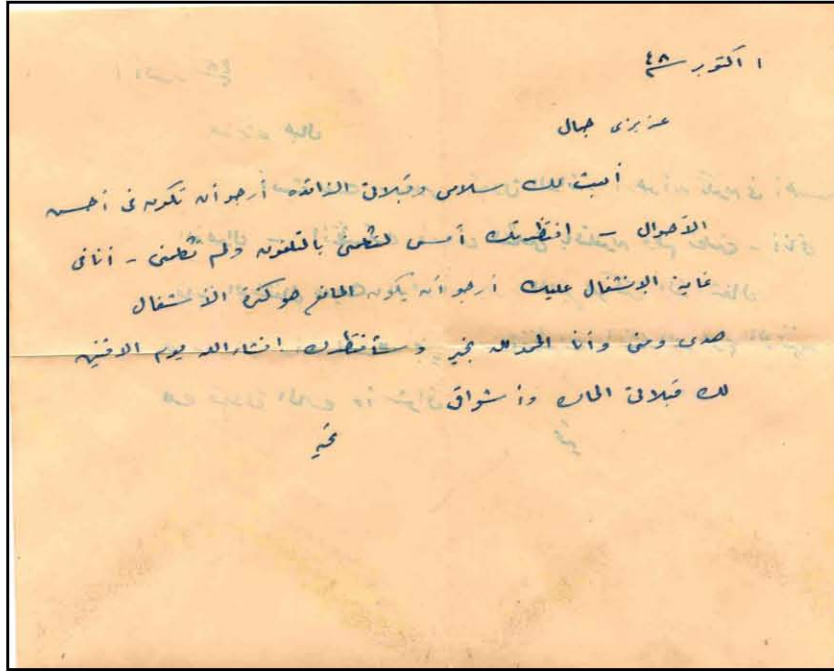 ١ أكتوبر ٤٨
عزيزى جمال
أبعث لك سلامى وقبلاتى الزائدة أرجو أن تكون فى أحسن
الأحوال - انتظرتك أمس لتكلمنى بالتلفون ولم تكلمنى - أنا فى
غاية الانشغال عليك أرجو أن يكون المانع هو كثرة الأشغال
هدى ومنى وأنا الحمد لله بخير وسأنتظرك انشاء الله يوم الاثنين
لك قبلاتى الحارة وأشواقى
تحية